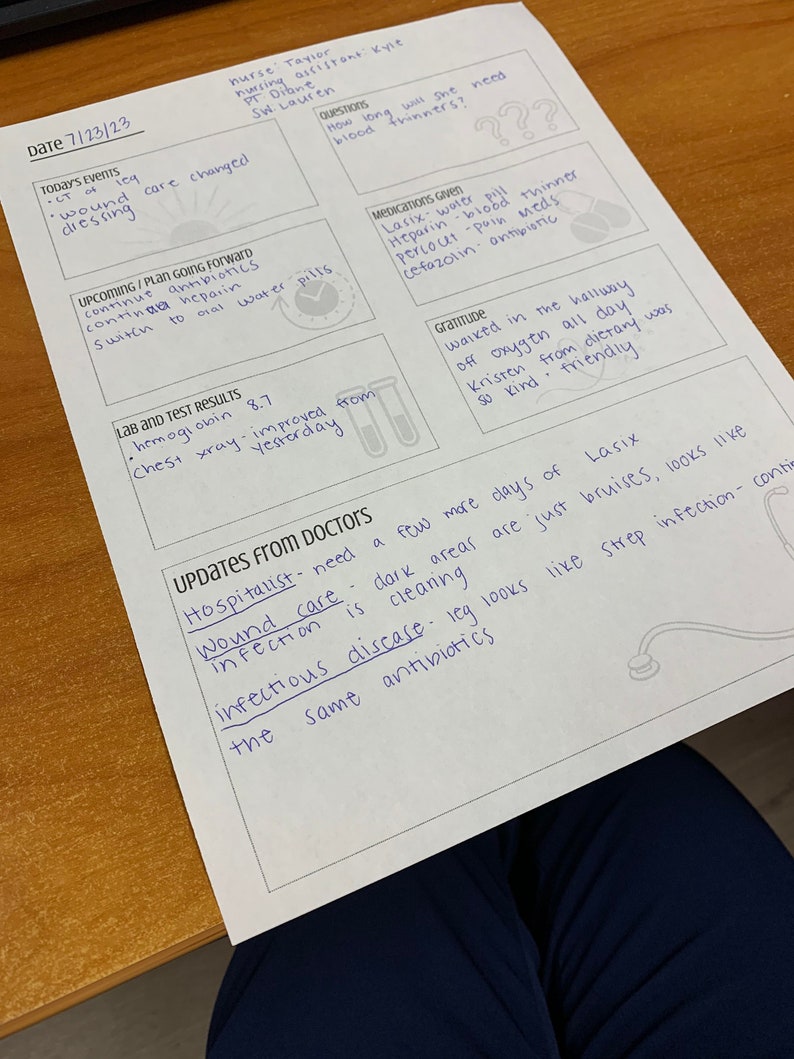 nurse: Taylor
nursing assistant: Kyle
PT Diane
SW: Lauren
Date 7/23/23
Today's Events
• CT of leg
• wound care changed
dressing
Questions
How long will she need
blood thinners?
Medications Given
Lasix- water pill
Heparin - blood thinner
percocet - pain meds
cefazolin- antibiotic
Upcoming / Plan Going Forward
continue antibiotics
continue heparin
switch to oral water pills
Gratitude
walked in the hallway
off oxygen all day
Kristen from dietary was
so kind + friendly
Lab and Test Results
• hemoglobin 8.7
• chest xray- improved from
yesterday
Updates from Doctors
Hospitalist- need a few more days of Lasix
Wound care - dark areas are just bruises, looks like
infection is clearing
infectious disease- leg looks like strep infection- contin
the same antibiotics